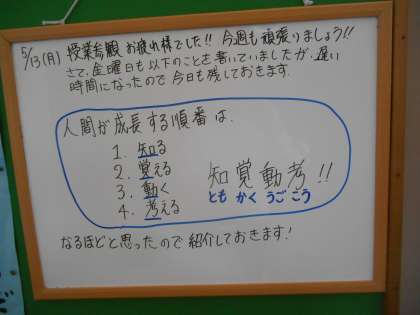 5/13(月) 授業参観 お疲れ様でした!! 今週も頑張りましょう!!
さて、金曜日も以下のことを書いていましたが、遅い
時間になったので今日も残しておきます。
人間が成長する順番は、
1. 知る
2. 覚える
3. 動く
4. 考える
知覚動考!!
とも かく うご こう
なるほどと思ったので紹介しておきます!